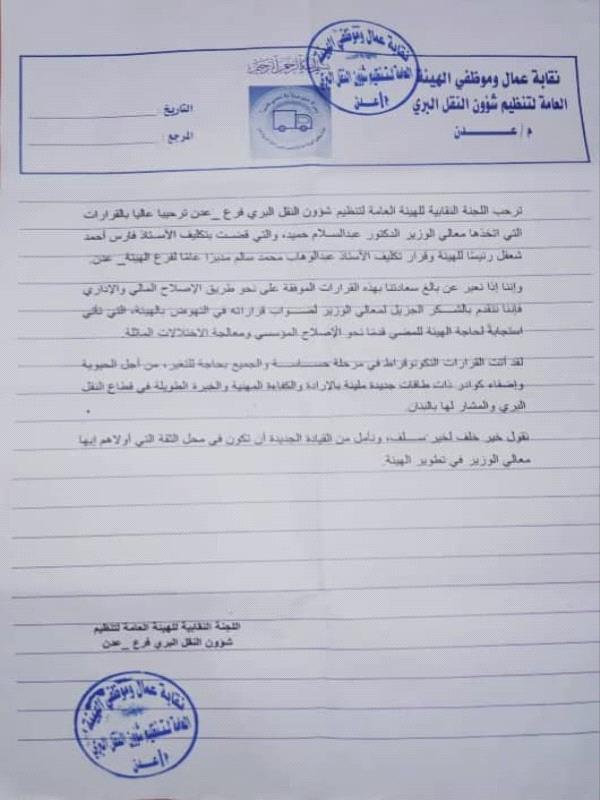 نقابة عمال وموظفي الهيئة
العامة لتنظيم شؤون النقل البري
م/ عـــدن
التاريخ :
المرجع :
نقابة عمال وموظفي الهيئة
العامة لتنظيم شؤون النقل البري
م/عدن
ترحب اللجنة النقابية للهيئة العامة لتنظيم شؤون النقل البري فرع _عدن ترحيبا عاليا بالقرارات
التي اتخذها معالي الوزير الدكتور عبدالسلام حميد، والتي قضت بتكليف الأستاذ فارس أحمد
شعفل رئيسًا للهيئة وقرار تكليف الأستاذ عبدالوهاب محمد سالم مديرًا عامًا لفرع الهيئة_ عدن.
وإننا إذا نعبر عن بالغ سعادتنا بهذه القرارات الموفقة على نحو طريق الإصلاح المالي والإداري
فإننا نتقدم بالشكر الجزيل لمعالي الوزير لصواب قراراته في النهوض بالهيئة، التي تأتي
استجابة لحاجة الهيئة للمضي قدمًا نحو الإصلاح المؤسسي ومعالجة الاختلالات الماثلة.
لقد أتت القرارات التكنوقراط في مرحلة حساسة والجميع بحاجة للتغير، من أجل الحيوية
وإضفاء كوادر ذات طاقات جديدة مليئة بالإرادة والكفاءة المهنية والخبرة الطويلة في قطاع النقل
البري والمشار لها بالبنان.
نقول خير خلف لخير سلف، ونأمل من القيادة الجديدة أن تكون في محل الثقة التي أولاهم إيها
معالي الوزير في تطوير الهيئة.
اللجنة النقابية للهيئة العامة لتنظيم
شؤون النقل البري فرع _عدن
نقابة عمال وموظفي الهيئة
العامة لتنظيم شؤون النقل البري
م/عدن